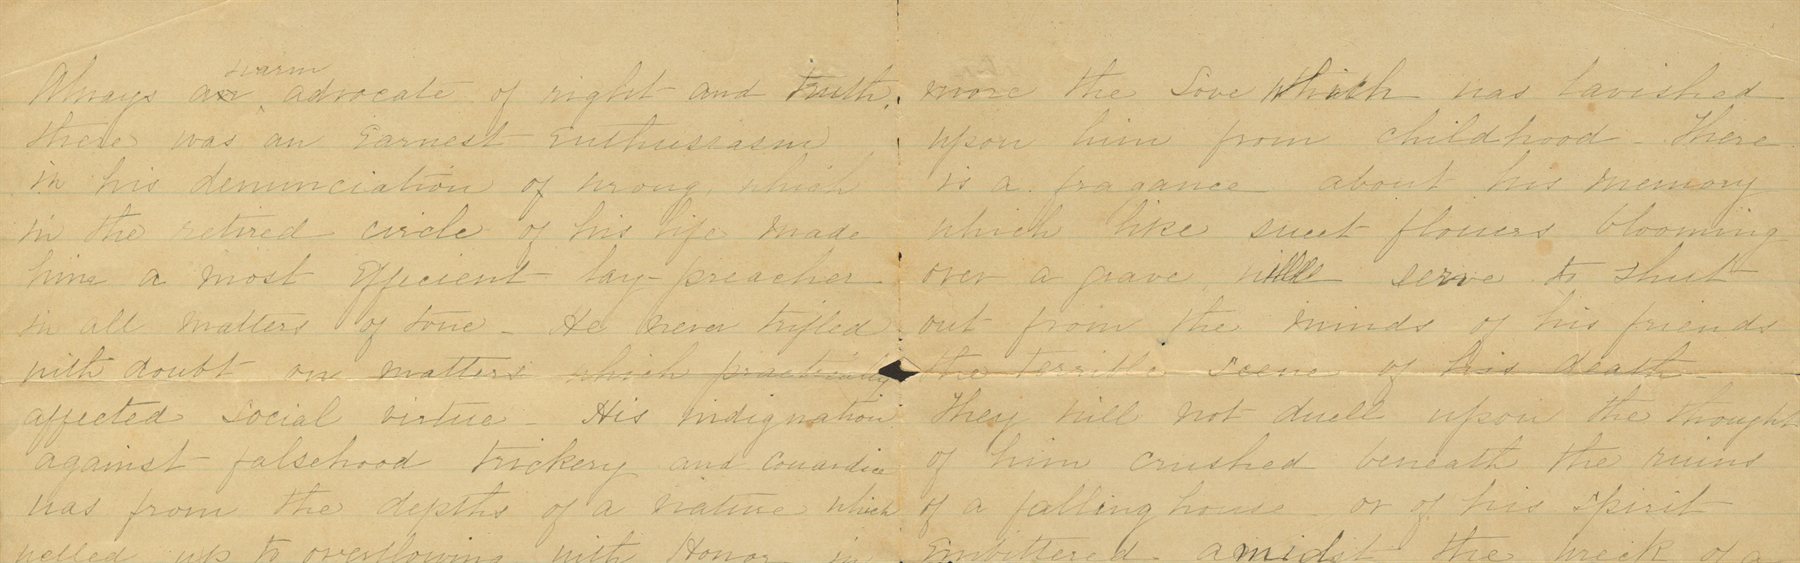 warm
Always an advocate of right and truth,
there was an Earnest Enthusiasm
in his denunciation of wrong, which
in the retired circle of his life made
him a most Efficient lay-preacher
in all matters of tone - He never trifled
with doubt on matters which practically
affected social virtue - His indignation
against falsehood trickery and cowardice
was from the depths of a nature which
welled up to overflowing with Honor in
more the Love which was lavished
upon him from childhood - There
is a fragance about his memory
which like sweet flowers blooming
over a grave, will serve to shut
out from the minds of his friends
the terrible scene of his death -
They will not dwell upon the thought
of him crushed beneath the ruins
of a falling house or of his spirit
Embittered amidst the wreck of a